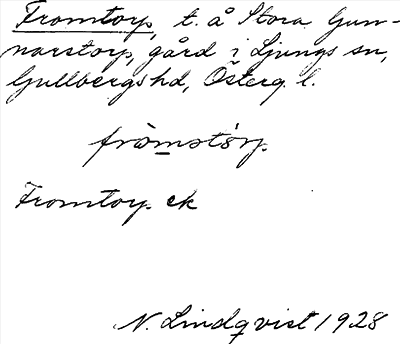 Fromtorp, t. å Stora Gun-
narstorp, gård i Ljungs sn,
Gullbergs hd, Österg. l.
fròmstòrp.
Fromtorp. ek
N. Lindqvist 1928